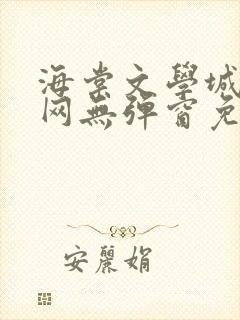 海棠文學城
网無彈窗免
安麗娟